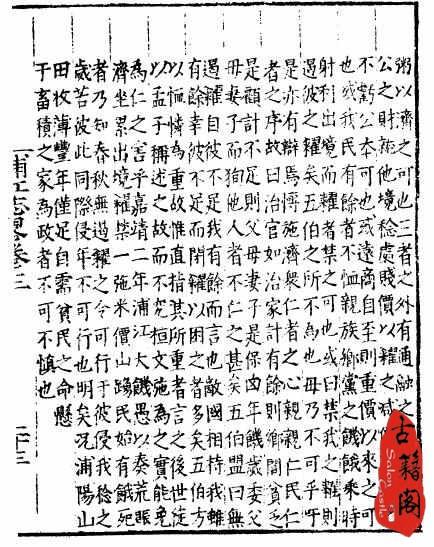 粥以濟之可也三者之外有通融之
公之財糴他境稔處賤價以糶之減
不虧公本可也或遠商自至則重價以來之可
也或我民有餘者不恤親族鄉黨之饑餓乘時
射利出境而糶者禁之可也或曰禁我之糶則
遏彼之糴矣五伯之所不為也毋乃不可乎吁
是亦有辯焉博施濟衆仁者之心親親仁民仁
者之序故曰治官如治家計有餘則鄉閭貧乏
是顧計不足則父母妻子是保凶年饑歲委父
母妻子而狥他人者不仁之甚矣五伯盟曰無
遏糴自彼不足我有餘而言也敵國相持我雖
有餘幸彼不足而閉糴以困之者多矣五伯方
以恤憐為重故惟直指其所重者言之後世徒
以孟子稱述之故而不究桓文施為之實能免
為仁之害乎嘉靖二年浦江大饑愚以奏荒賑
濟坐累出境糴禁一弛米價山踴民始有餓死
者乃知春秋無遏糴之令可行於彼侵我稔之
歲苦彼此同侵年不可行也明矣况浦陽山
田收薄豐年僅足自需貧民之命懸
于畜積之家為政者不可不慎也
浦江志畧卷之三
二十三
古籍阁
Salon
Castle